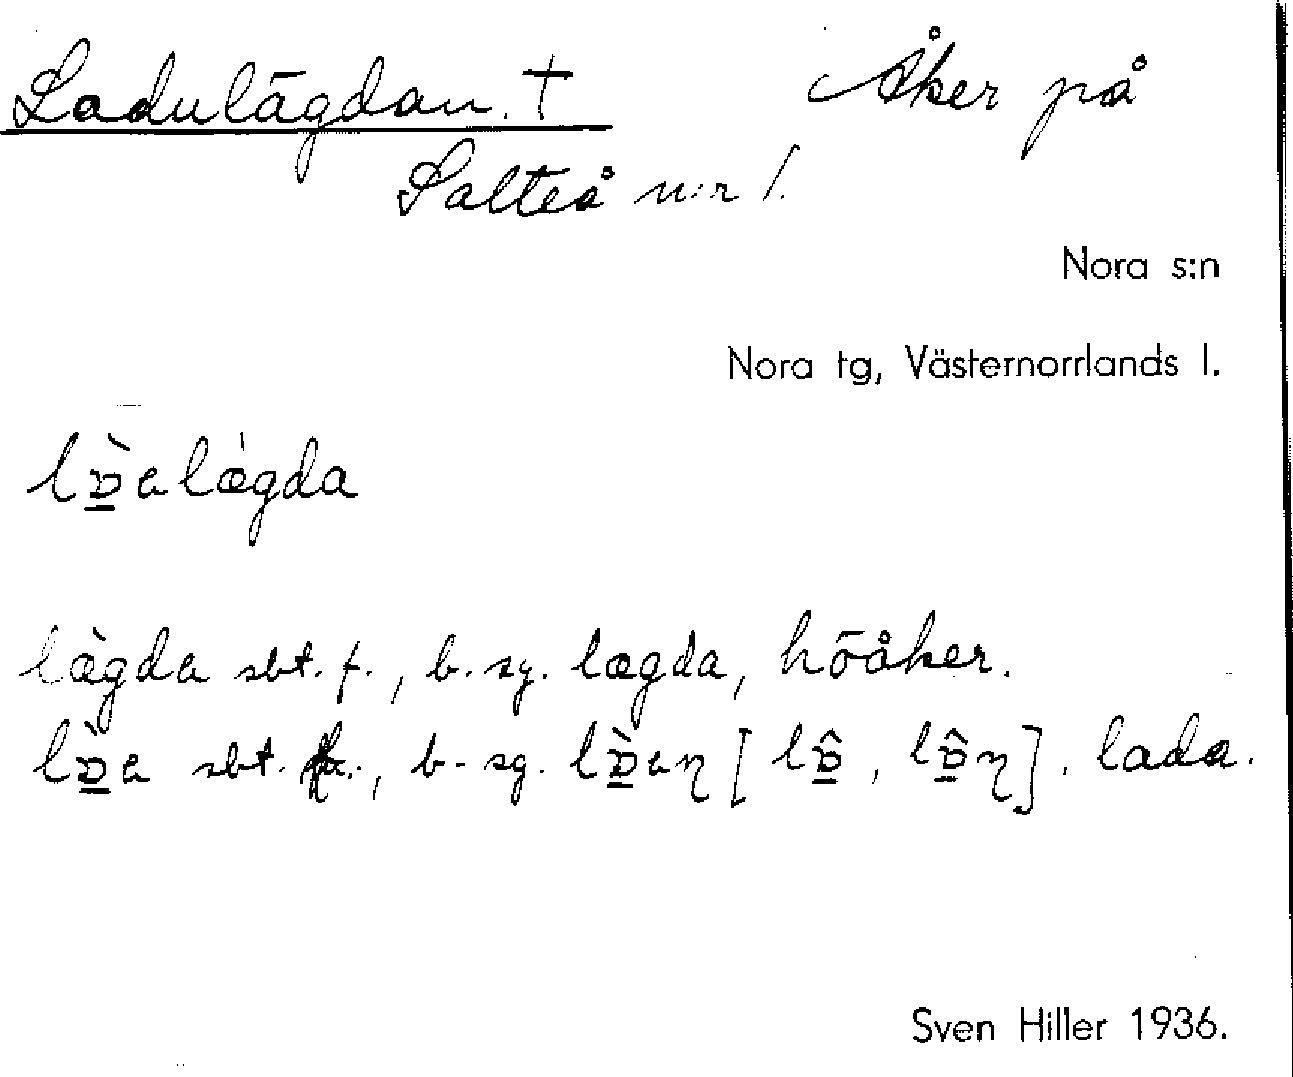 Ladulägdan. † Åker på
Salteå n:r 1.
Nora s:n
Nora tg, Västernorrlands l.
lɒ̠̀alæ̀gda
læ̀gda sbt. f., b. sg. lægda, höåker.
lɒ̠̀a sbt. m., b. sg. lɒ̠̀aŋ [lɒ̠̂, lɒ̠̂ŋ]. lada.
Sven Hiller 1936.